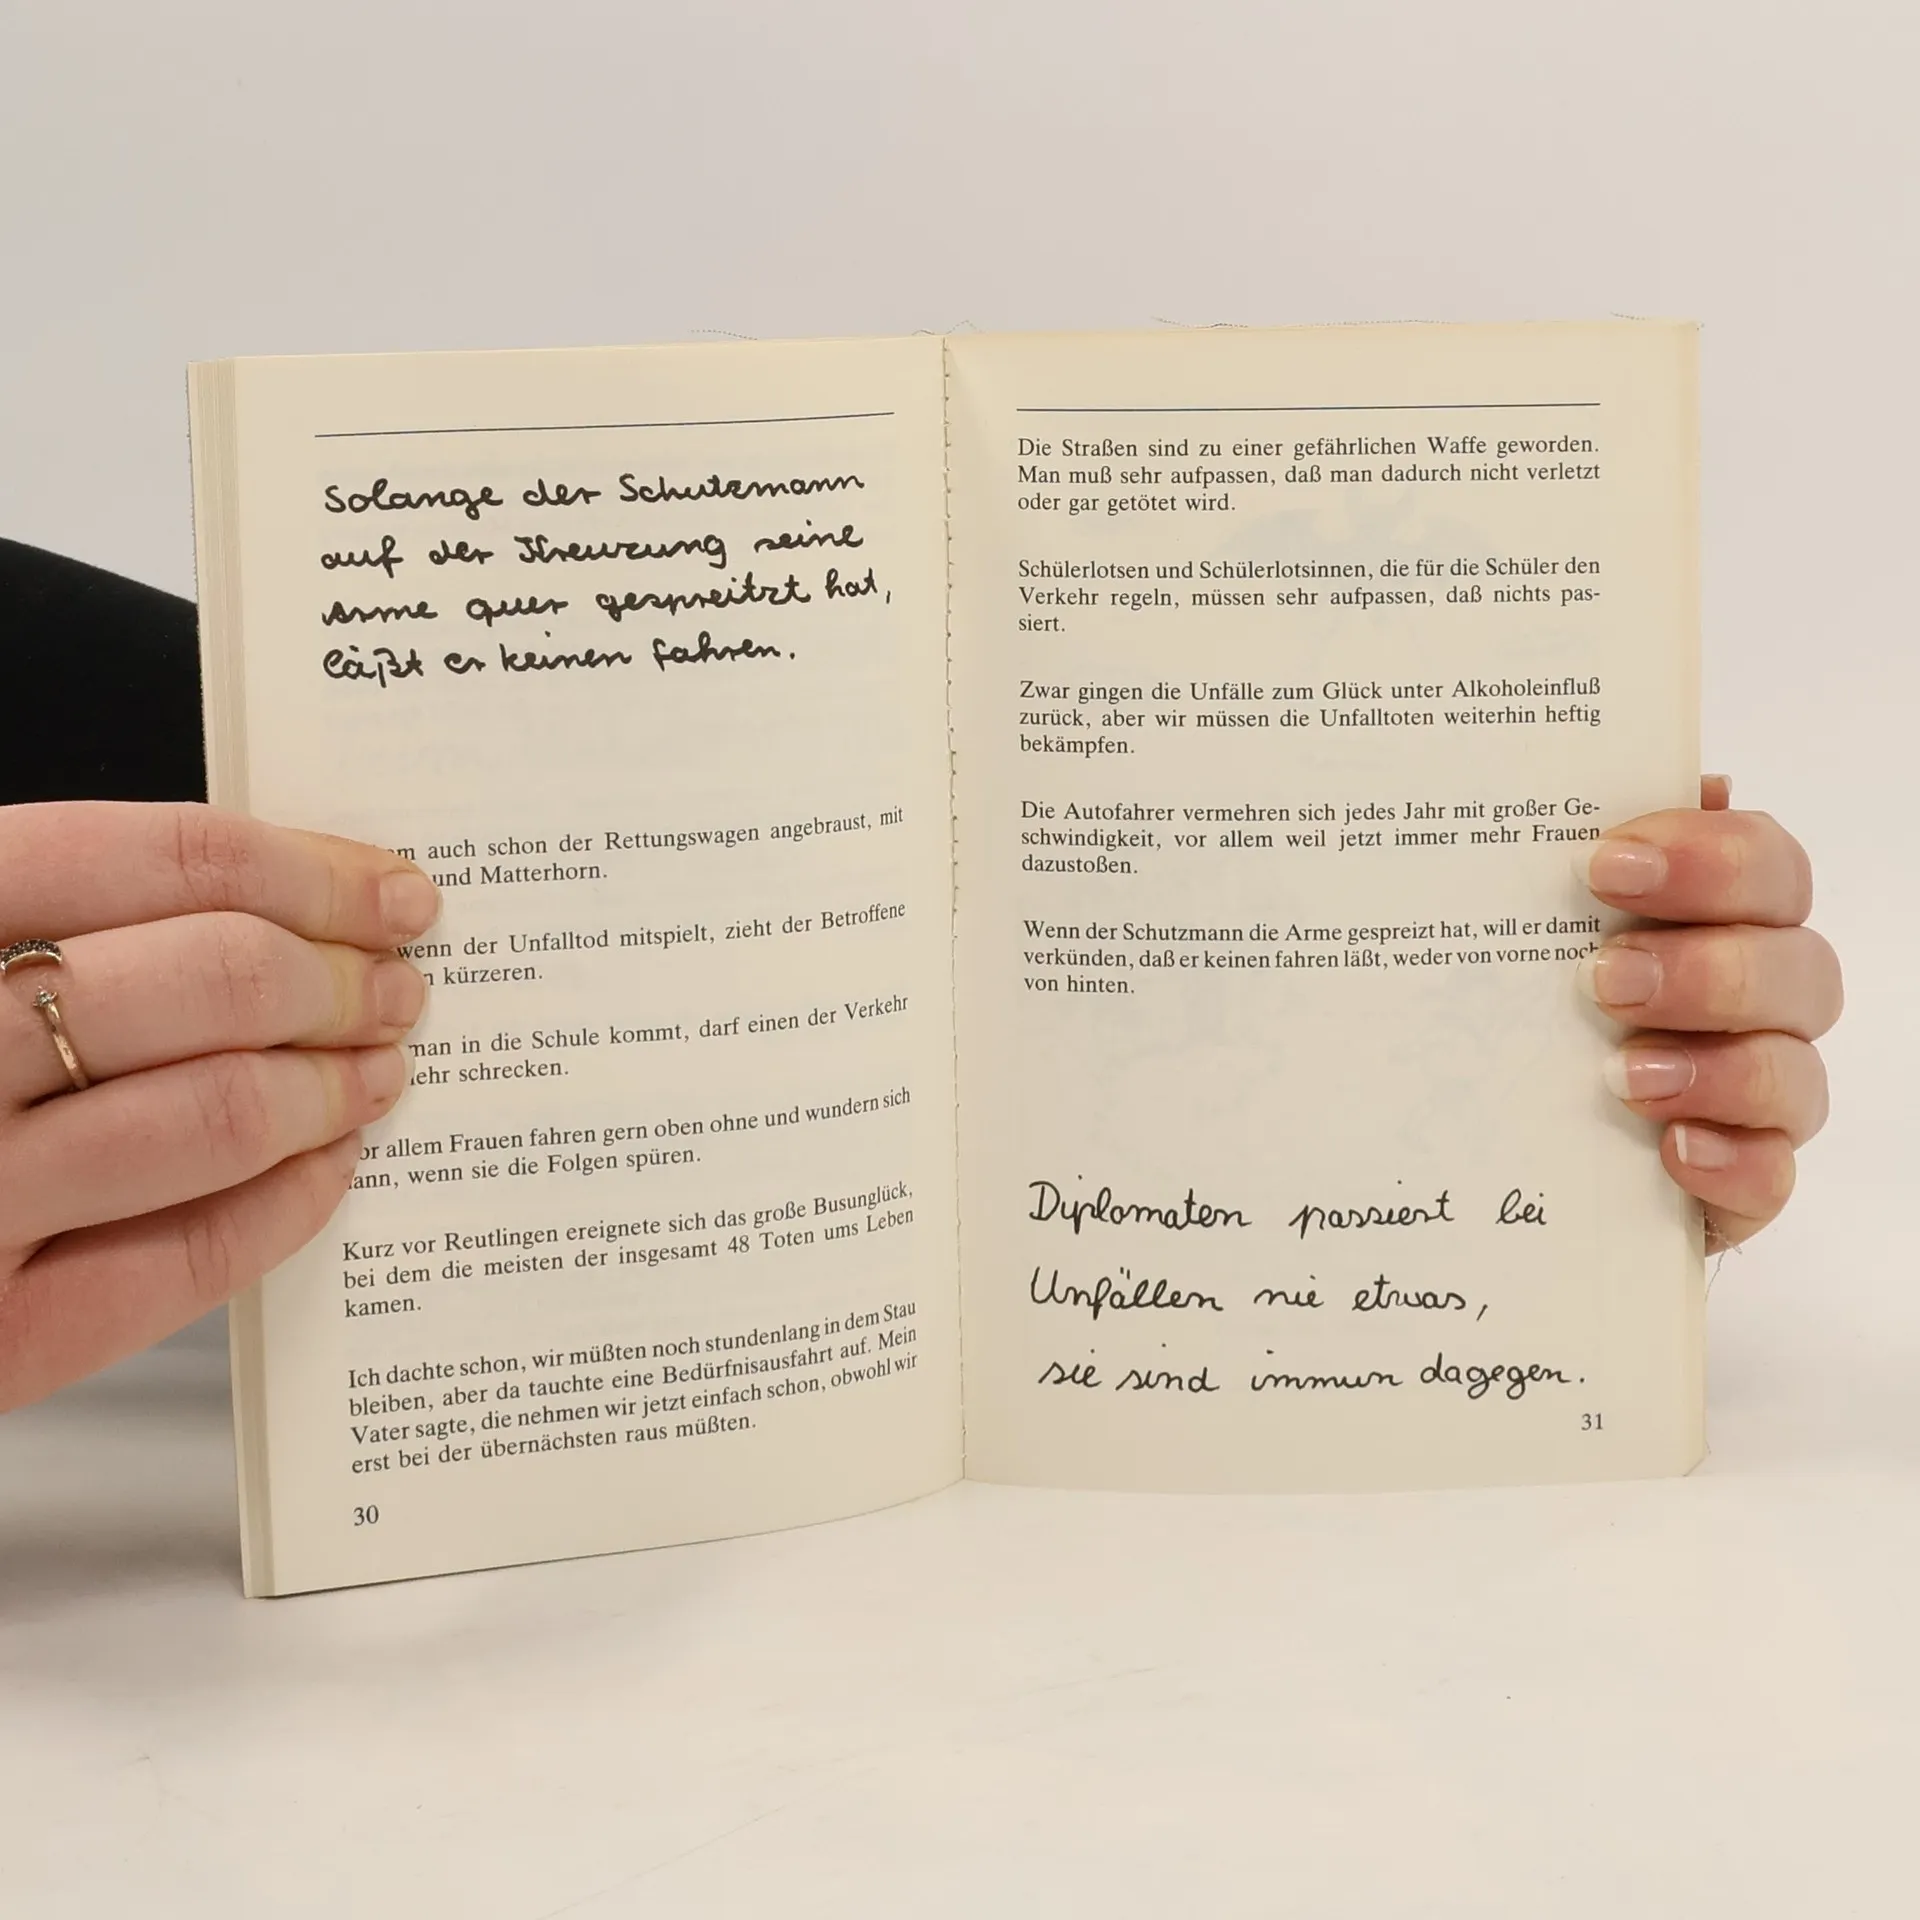 Solange der Schutzmann
auf der Kreuzung seine
Arme quer gespreitzt hat,
läßt er keinen fahren.
auch schon der Rettungswagen angebraust, mit
und Matterhorn.
wenn der Unfalltod mitspielt, zieht der Betroffene
kürzeren.
man in die Schule kommt, darf einen der Verkehr
schrecken.
allem Frauen fahren gern oben ohne und wundern sich
wenn sie die Folgen spüren.
Kurz vor Reutlingen ereignete sich das große Busunglück,
bei dem die meisten der insgesamt 48 Toten ums Leben
kamen.
Ich dachte schon, wir müßten noch stundenlang in dem Stau
bleiben, aber da tauchte eine Bedürfnisausfahrt auf. Mein
Vater sagte, die nehmen wir jetzt einfach schon, obwohl wir
erst bei der übernächsten raus müßten.
30
Die Straßen sind zu einer gefährlichen Waffe geworden.
Man muß sehr aufpassen, daß man dadurch nicht verletzt
oder gar getötet wird.
Schülerlotsen und Schülerlotsinnen, die für die Schüler den
Verkehr regeln, müssen sehr aufpassen, daß nichts pas-
siert.
Zwar gingen die Unfälle zum Glück unter Alkoholeinfluß
zurück, aber wir müssen die Unfalltoten weiterhin heftig
bekämpfen.
Die Autofahrer vermehren sich jedes Jahr mit großer Ge-
schwindigkeit, vor allem weil jetzt immer mehr Frauen
dazustoßen.
Wenn der Schutzmann die Arme gespreizt hat, will er damit
verkünden, daß er keinen fahren läßt, weder von vorne noch
von hinten.
Diplomaten passiert bei
Unfällen nie etwas,
sie sind immun dagegen.
31